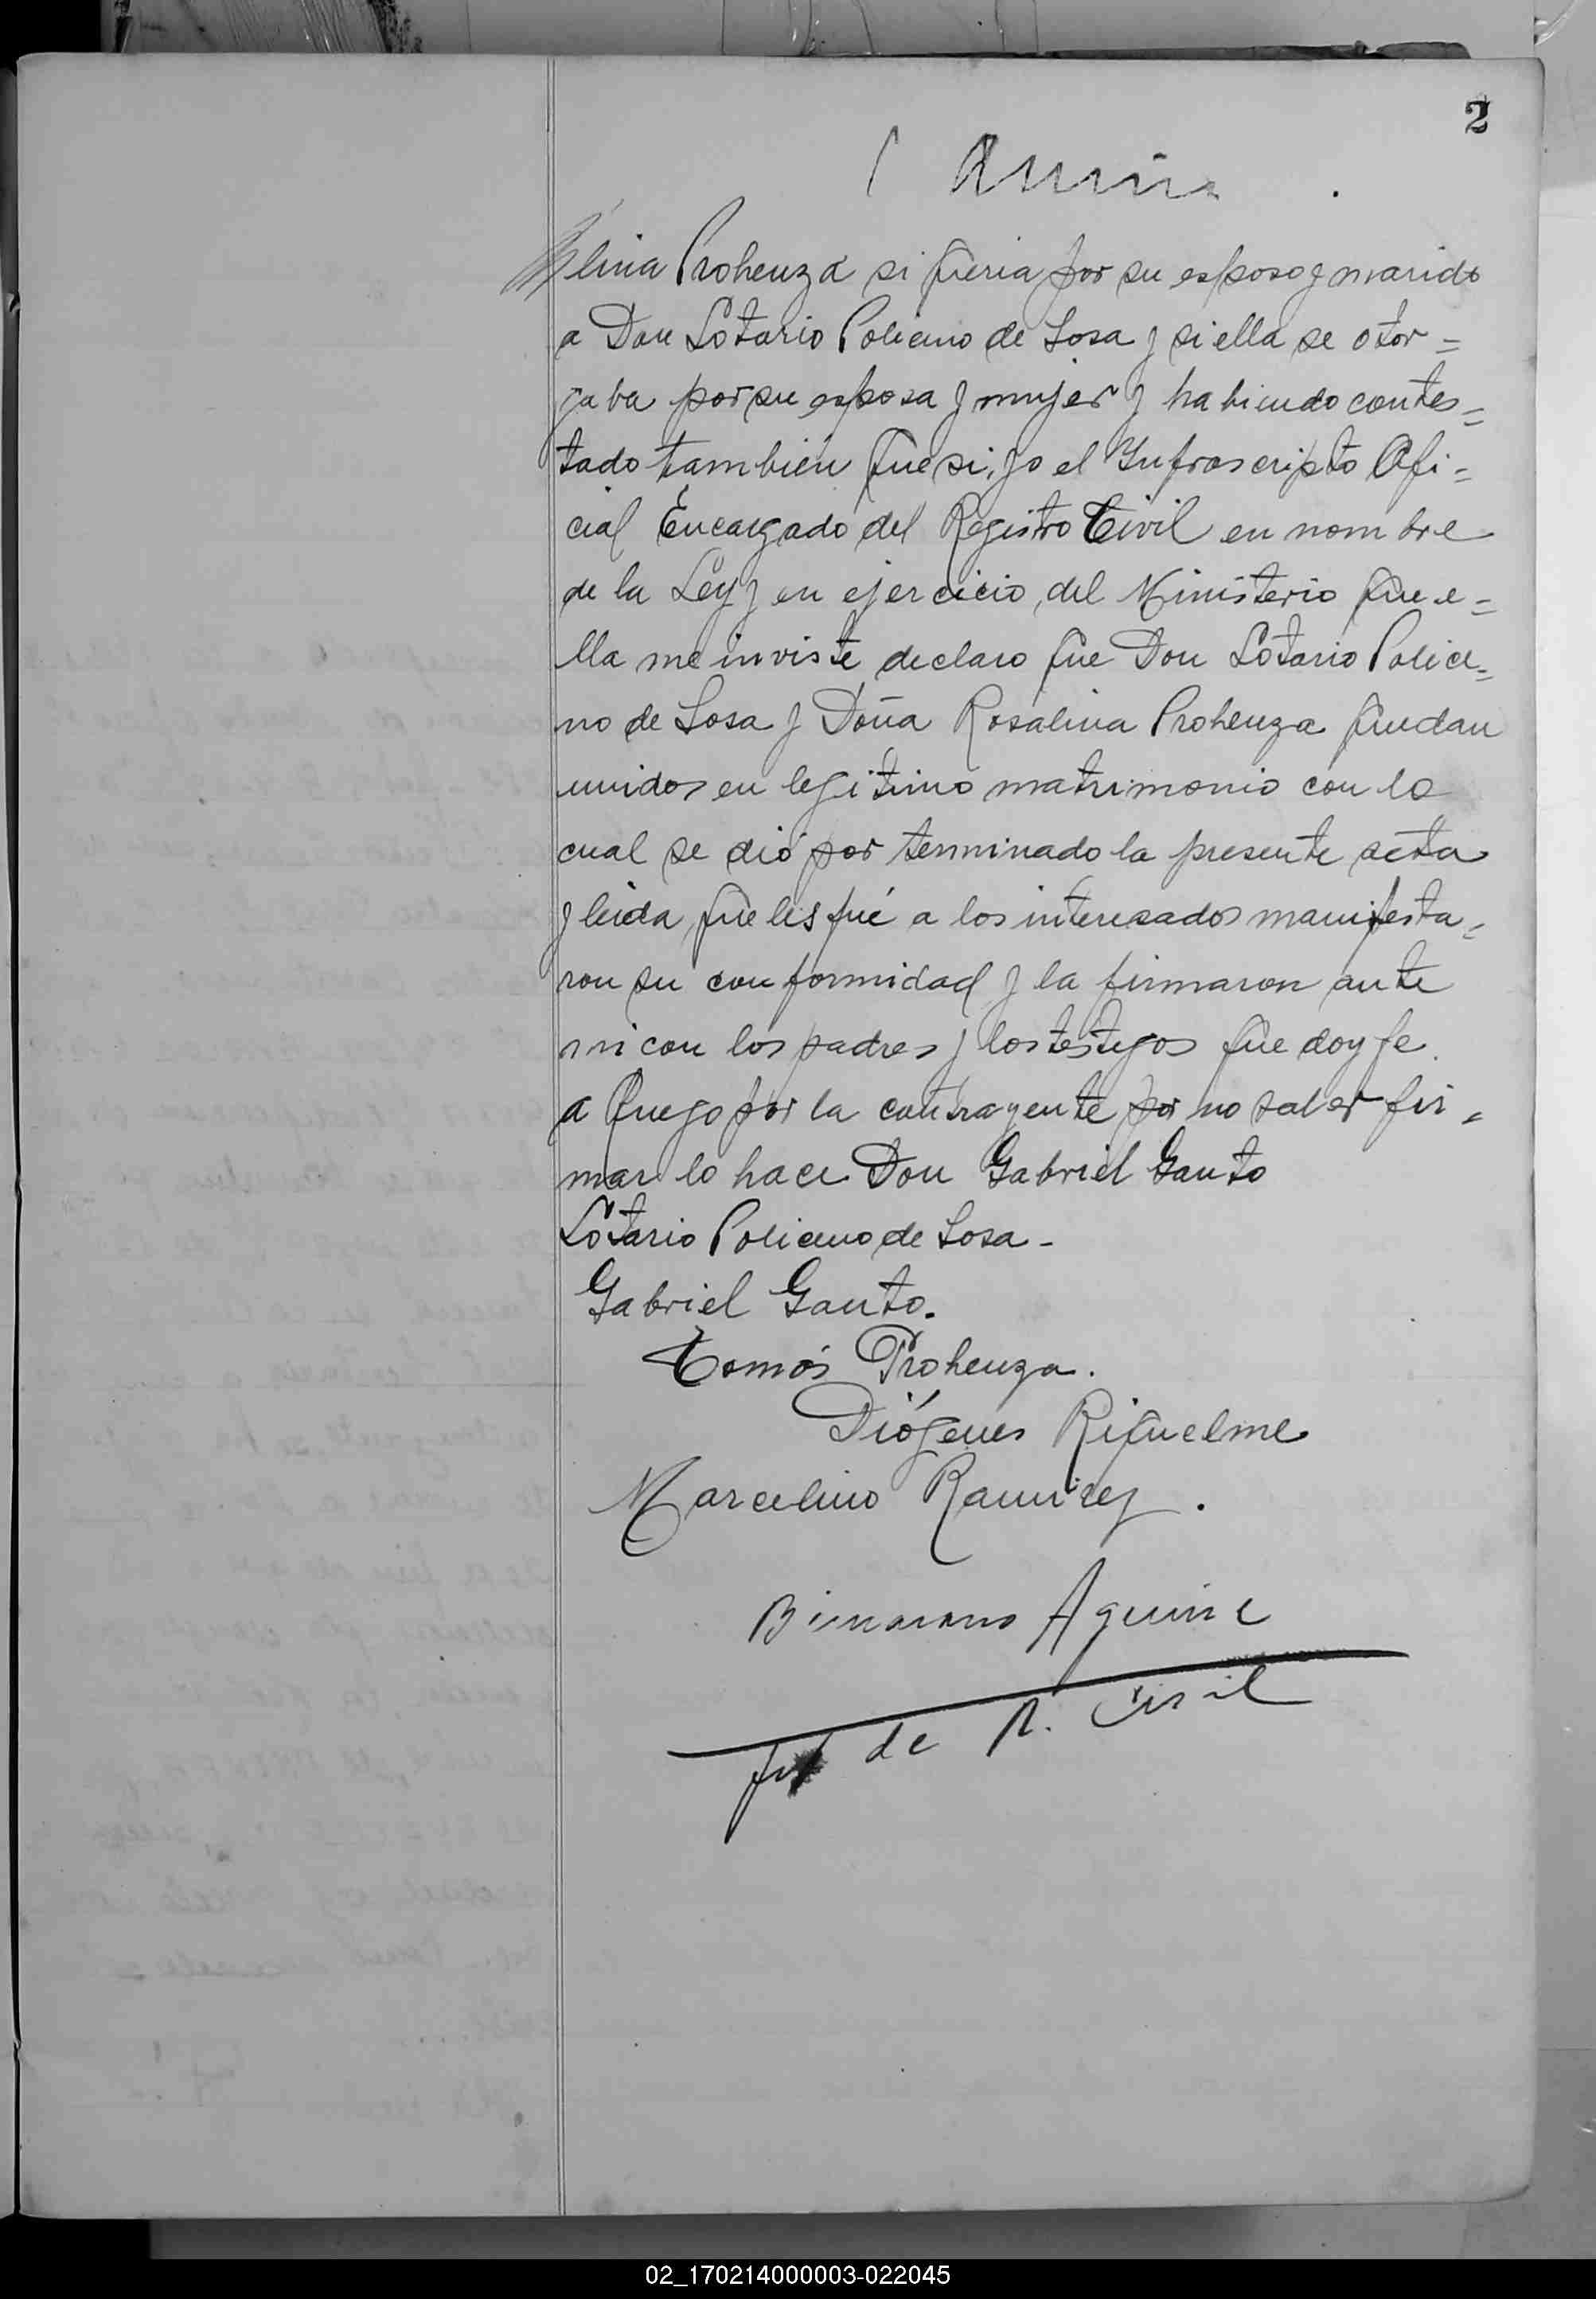 2
lina Prohenza si queria por su esposo y marido
a Don Lotario Policeno de Sosa y si ella se otor=
gaba por su esposa y mujer y habiendo contes=
tado también que si, yo el Infrascripto Ofi=
cial Encargado del Registro Civil en nombre
de la Ley y en ejercicio, del Ministerio que e=
lla me inviste declaro que Don Lotario Police=
no de Sosa y Doña Rosalina Prohenza quedan
unidos en legitimo matrimonio con lo
cual se dió por terminado la presente acta
y leida, que les fué a los interesados manifesta=
ron su conformidad y la firmaron ante
mi con los padres y los testigos que doy fe.
a Ruego por la contrayente por no saber fir=
mar lo hace Don Gabriel Gauto
Lotario Policeno de Sosa-
Gabriel Gauto.
Tomás Prohenza.
Diógenes Riquelme
Marcelino Ramirez.
Aguirre
de R. Civil
02_170214000003-022045